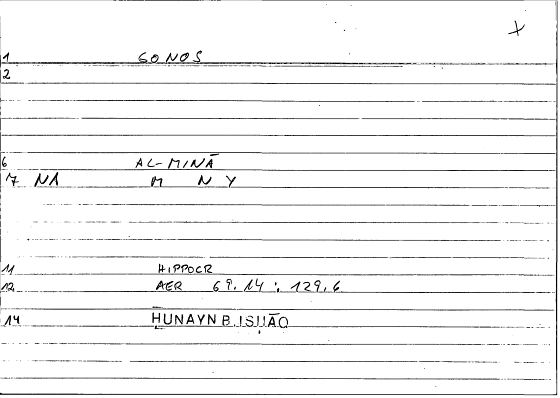 +
1 GONOS
2
6 AL-MINĀ
7 NA M N Y
11 HIPPOCR
12 AER 69.14 : 129.6
14 HUNAYN B. ISḤĀQ